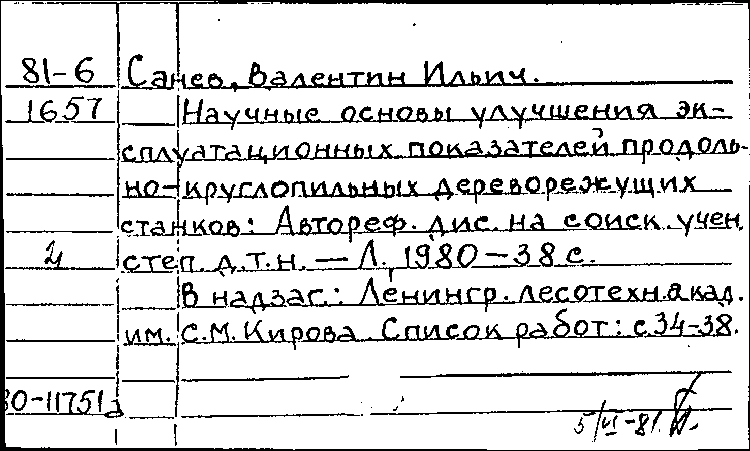 81-6 Санев, Валентин Ильич.
1657 Научные основы улучшения эк-
сплуатационных показателей продоль-
но-круглопильных дереворежущих
станков: Автореф. дис. на соиск. учен.
степ. д.т.н. — Л., 1980 — 38 с.
В надзаг.: Ленингр. лесотехн. акад.
им. С.М. Кирова. Список работ: с. 34-38.
80-11751а
5/VI-81.